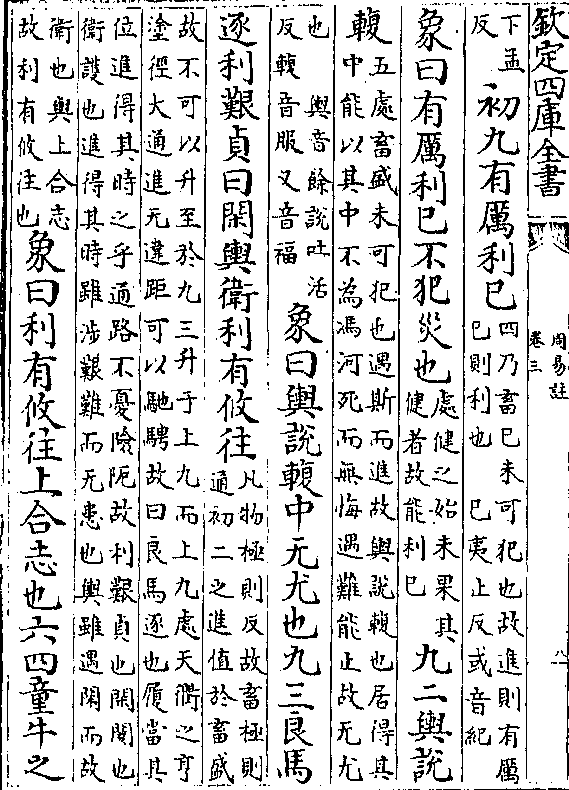 欽定四庫全書
周易註
卷三
八
下孟
反
初九有厲利已
四乃畜已未可犯也故進則有厲
已則利也　已夷止反或音紀
象曰有厲利已不犯災也
處健之始未果其
健者故能利已
九二輿說
輹
五處畜盛未可犯也遇斯而進故輿說輹也居得其
中能以其中不為馮河死而無悔遇難能止故无尤
也　輿音餘說吐活
反輹音服又音福
象曰輿說輹中无尤也九三良馬
逐利艱貞曰閑輿衛利有攸往
凡物極則反故畜極則
通初二之進值於畜盛
故不可以升至於九三升于上九而上九處天衢之亨
塗徑大通進无違距可以馳騁故曰良馬逐也履當其
位進得其時之乎通路不憂險阨故利艱貞也閑閡也
衛護也進得其時雖涉艱難而无患也輿雖遇閑而故
衛也與上合志
故利有攸往也
象曰利有攸往上合志也六四童牛之